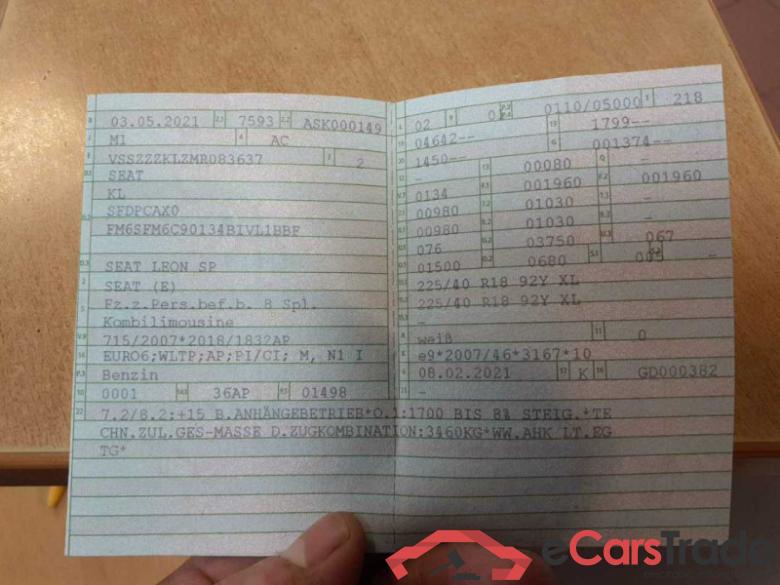 03.05.2021 7593 ASK000149
M1 AC
VSSZZZKLZMR083637 2
SEAT
KL
SFDPCAX0
FM6SFM6C90134BIVL1BBF
SEAT LEON SP
SEAT (E)
Fz.z.Pers.bef.b. 8 Spl.
Kombilimousine
715/2007*2018/1832AP
EURO6;WLTP;AP;PI/CI; M, N1 I
Benzin
0001 36AP 01498
02 0110/05000 218
04642-- 1799--
1450-- 001374--
- 00080 -
0134 001960 001960
00980 01030 -
00980 01030 -
076 03750 067
01500 0680 -
225/40 R18 92Y XL
225/40 R18 92Y XL
-
weiß 0
e9*2007/46*3167*10
08.02.2021 K GD000382
-
7.2/8.2:+15 B.ANHÄNGEBETRIEB*O.1:1700 BIS 8% STEIG.*TE
CHN.ZUL.GES-MASSE D.ZUGKOMBINATION:3460KG*WW.AHK LT.EG
TG*
eCarsTrade